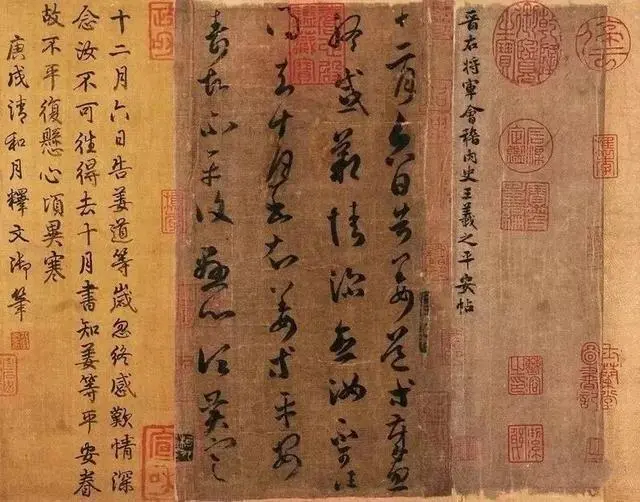 晉右將軍會稽內史王羲之平安帖
十二月六日告姜道等歲忽
終感歎情深念汝不可往
得去十月書知姜等平安
壽故不平復懸心頃異寒
十二月六日告姜道等歲忽終感歎情深
念汝不可徃得去十月書知姜等平安眷
故不平復懸心頃異寒
庚戌清和月釋文御筆